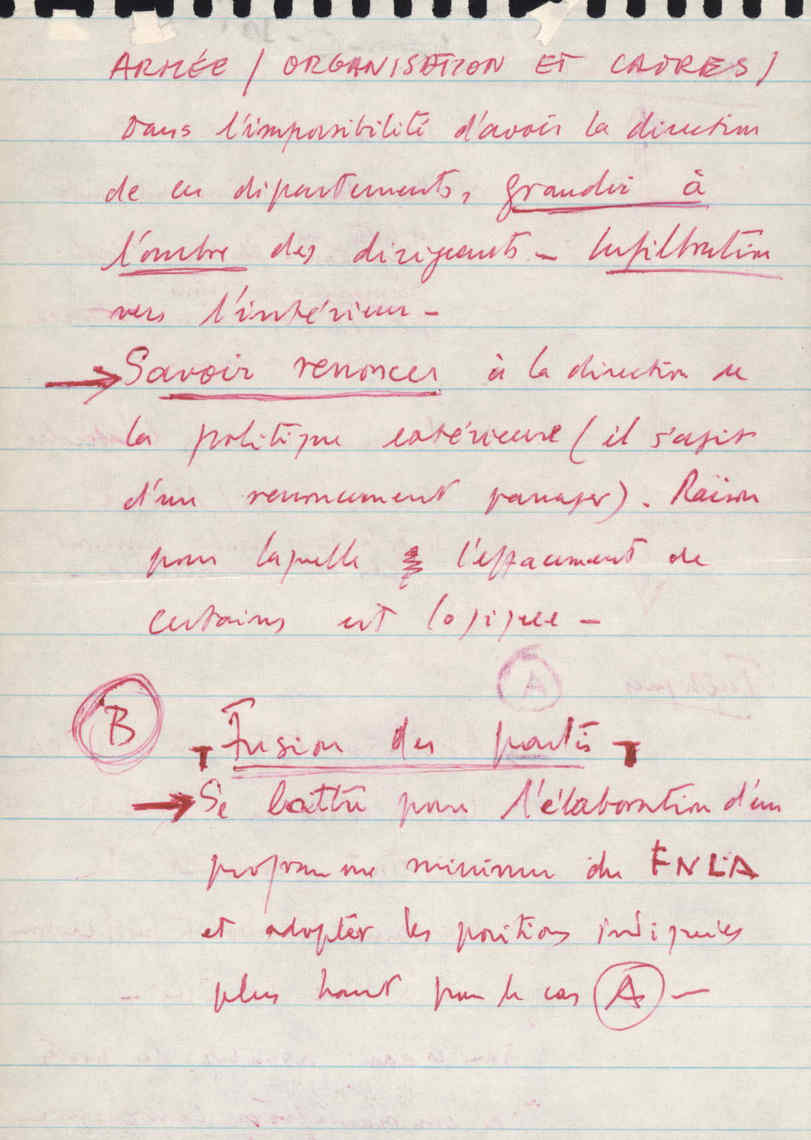 ARMÉE / ORGANISATION ET CADRES /
Dans l'impossibilité d'avoir la direction
de ces départements, grandir à
l'ombre des dirigeants - Infiltration
vers l'intérieur -
→ Savoir renoncer à la direction de
la politique extérieure (il s'agit
d'un renoncement passager). Raison
pour laquelle l'effacement de
certains est logique -
B
Fusion des partis
→ Se battre pour l'élaboration d'un
programme minimum du FNLA
et adopter les positions indiquées
plus haut pour le cas A -